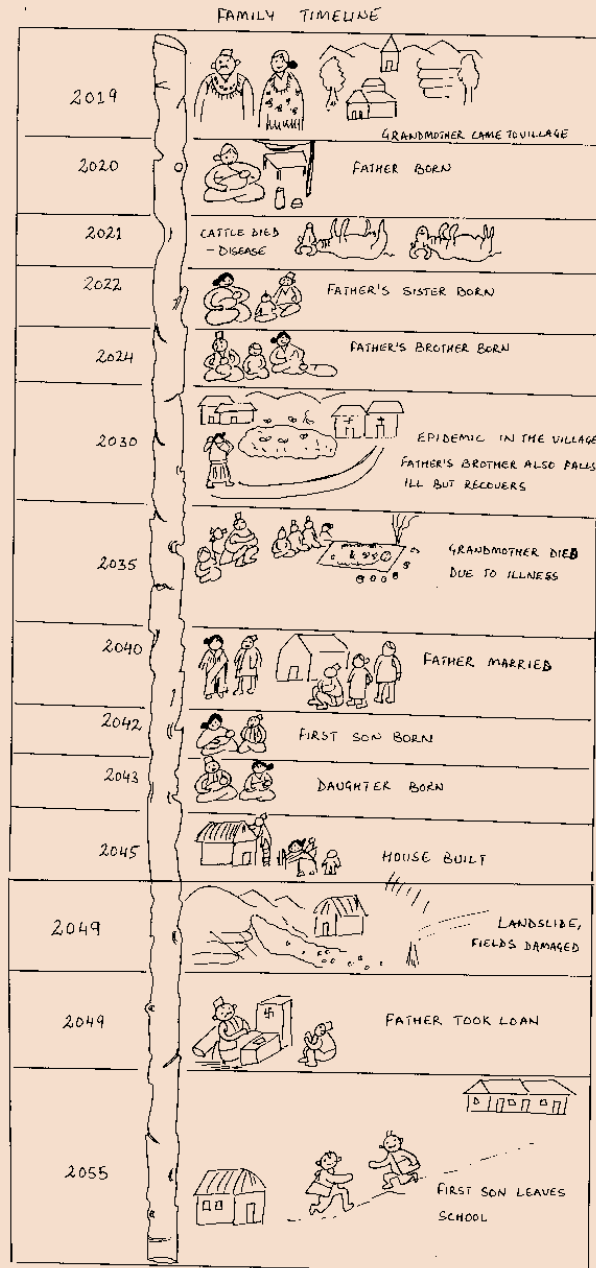 FAMILY TIMELINE
2019
GRANDMOTHER CAME TO VILLAGE
2020
FATHER BORN
2021
CATTLE DIED
- DISEASE
2022
FATHER'S SISTER BORN
2024
FATHER'S BROTHER BORN
2030
EPIDEMIC IN THE VILLAGE
FATHER'S BROTHER ALSO FALLS
ILL BUT RECOVERS
2035
GRANDMOTHER DIED
DUE TO ILLNESS
2040
FATHER MARRIED
2042
FIRST SON BORN
2043
DAUGHTER BORN
2045
HOUSE BUILT
2049
LANDSLIDE,
FIELDS DAMAGED
2049
FATHER TOOK LOAN
2055
FIRST SON LEAVES
SCHOOL